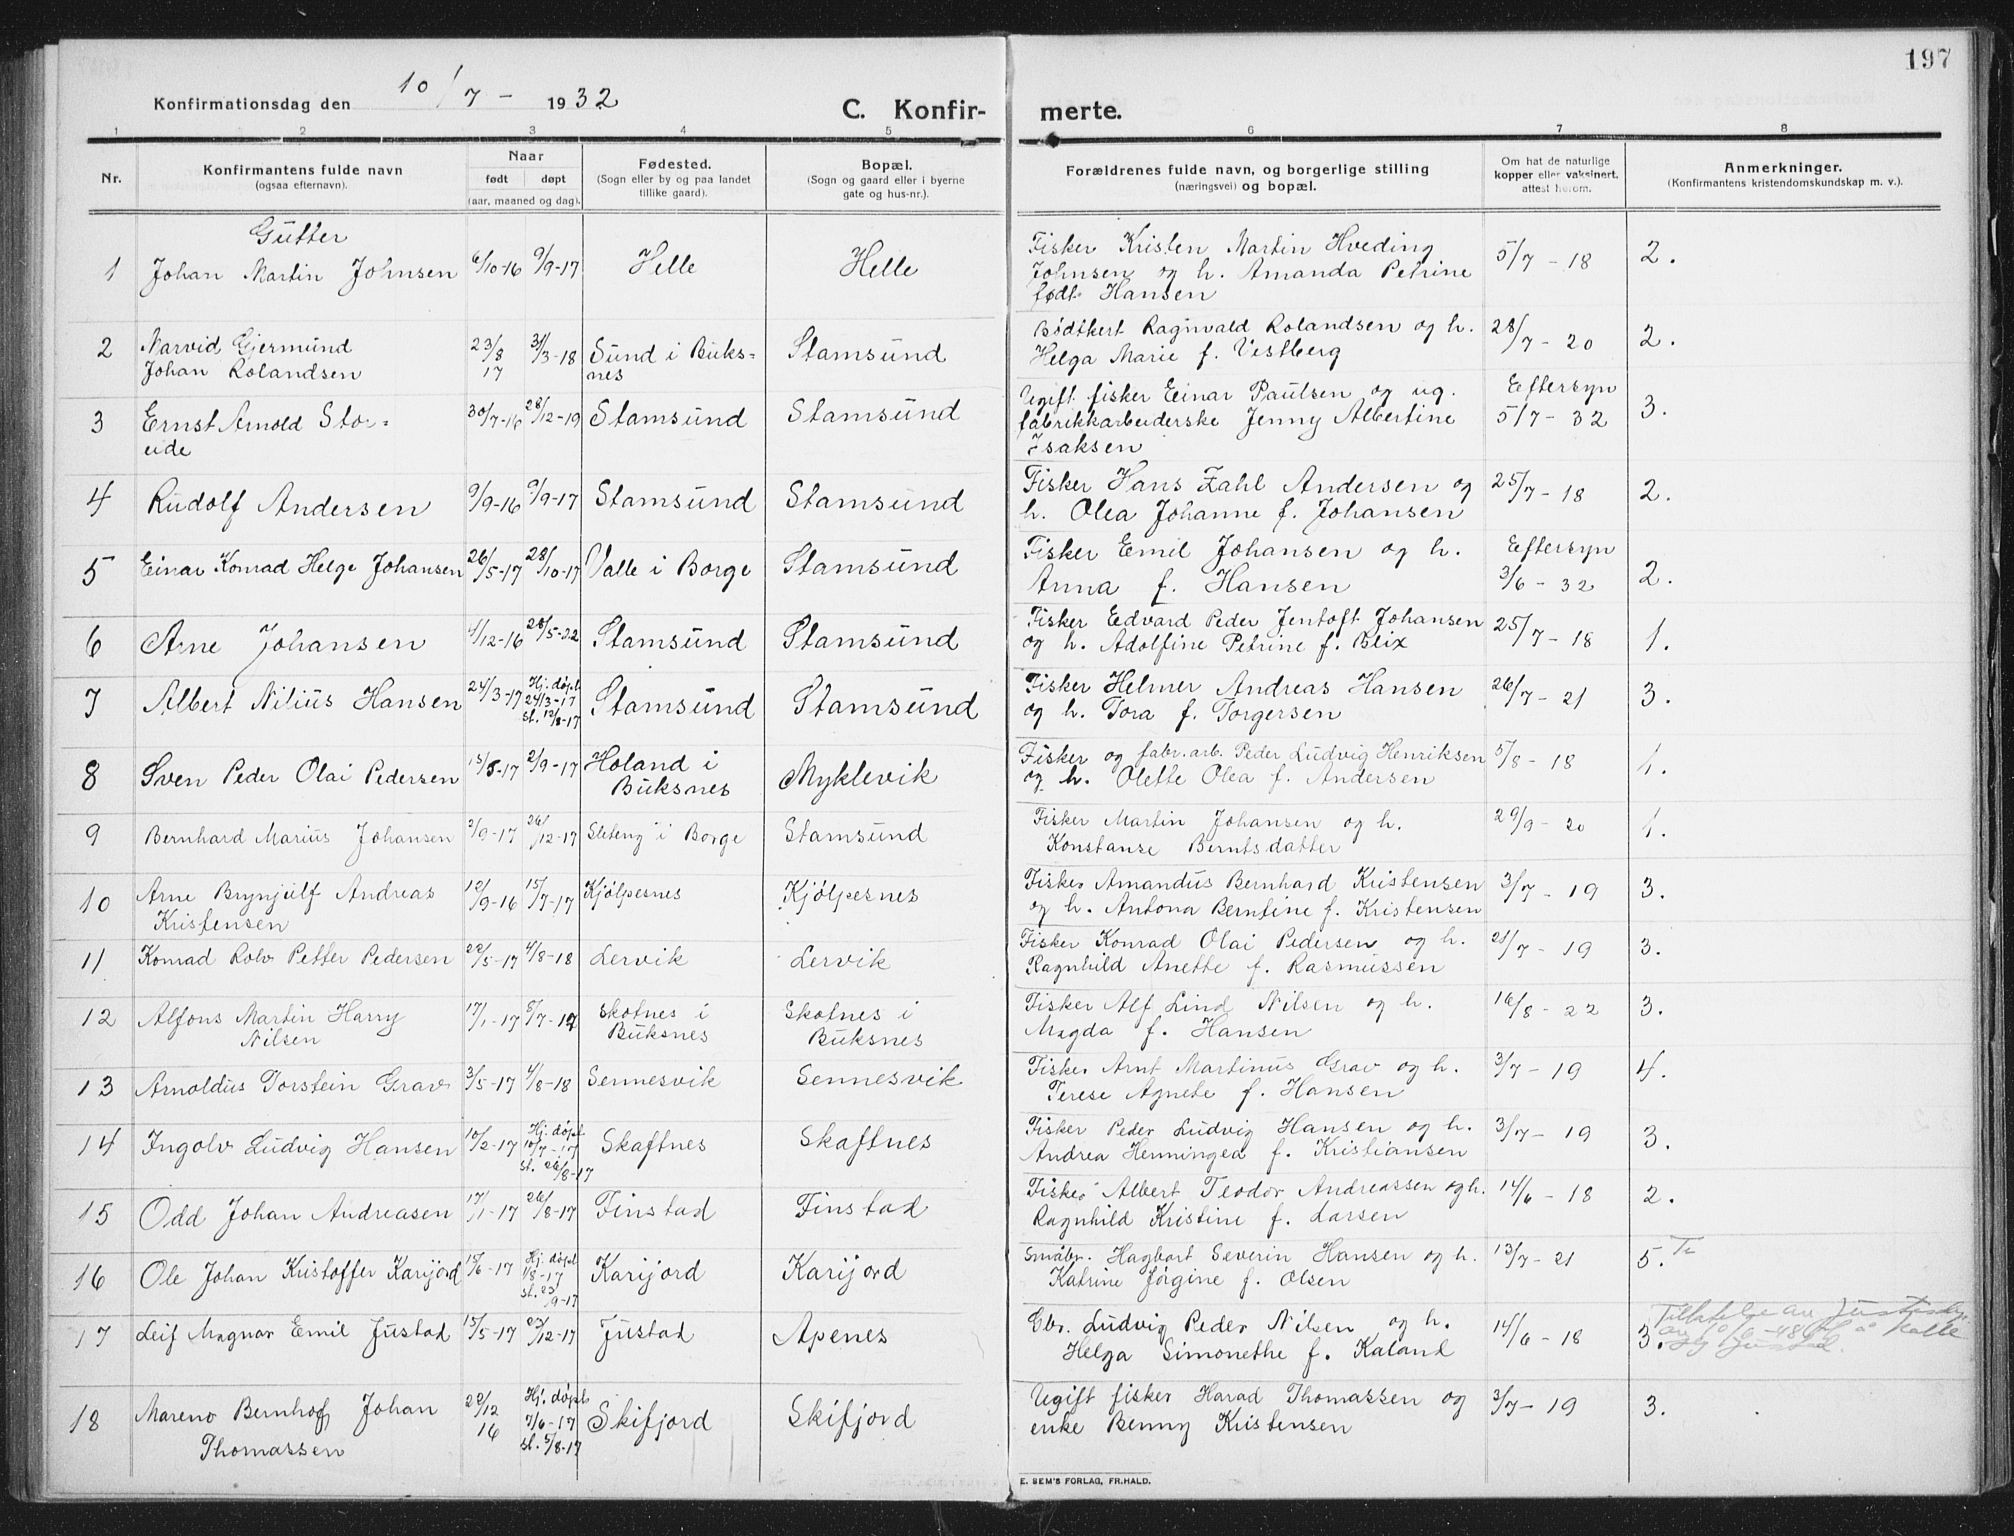 197
Konfirmationsdag den 10/7 - 1932
C. Konfir- merte.
1 2 3 4 5 6 7 8
Nr.
Konfirmantens fulde navn
(ogsaa efternavn).
Naar
født døpt
(aar, maaned og dag).
Fødested.
(Sogn eller by og paa landet
tillike gaard).
Bopæl.
(Sogn og gaard eller i byerne
gate og hus-nr.).
Forældrenes fulde navn, og borgerlige stilling
(næringsvei) og bopæl.
Om hat de naturlige
kopper eller vaksinert,
attest herom.
Anmerkninger.
(Konfirmantens kristendomskundskap m. v.).
Gutter
1 Johan Martin Johnsen 6/10-16 9/9-17 Helle Helle
Fisker Kristen Martin Hveding
Johnsen og h. Amanda Petrine
født Hansen
5/7 - 18 2.
2 Narvid Gjermund
Johan Rolandsen
23/8
17
31/3-18 Sund i Buks=
nes
Stamsund
Bødtkert Raginvald Rolandsen og h.
Helga Marie f. Vestberg
28/7 - 20 2.
3 Ernst Arnold Stor=
eide
30/7-16 28/12-19 Stamsund Stamsund
Ugift fisker Einar Paulsen og ug.
fabrikkarbeiderske Jenny Albertine
Isaksen
Eftersyn
5/7 - 32 3.
4 Rudolf Andersen 9/9-16 9/9-17 Stamsund Stamsund
Fisker Hans Zahl Andersen og
h. Olea Johanne f. Johansen
25/7 - 18 2.
5 Einar Konrad Helge Johansen 26/5-17 28/10-17 Valle i Borge Stamsund
Fisker Emil Johansen og h.
Anna f. Hansen
Eftersyn
3/6 - 32 2.
6 Arne Johansen 4/12-16 28/5-22 Stamsund Stamsund
Fisker Edvard Peder Jentoft Johansen
og h. Adolfine Petrine f. Blix
25/7 - 18 1.
7 Albert Nilius Hansen 24/3-17 Hj. døpt
24/3-17
st. 12/8-17
Stamsund Stamsund
Fisker Helmer Andreas Hansen
og h. Tora f. Torgersen
26/7 - 21 3.
8 Sven Peder Olai Pedersen 15/5-17 2/9-17 Holand i
Buksnes
Myklevik
Fisker og fabr.arb. Peder Ludvig Henriksen
og h. Olette Olea f. Andersen
5/8 - 18 1.
9 Bernhard Marius Johansen 2/9-17 26/12-17 Sleteng i Borge Stamsund
Fisker Martin Johansen og h.
Konstanse Berntsdatter
29/9 - 20 1.
10 Arne Brynjulf Andreas
Kristensen
12/9-16 15/7-17 Kjølpesnes Kjølpesnes
Fisker Amandus Bernhard Kristensen
og h. Antona Berntine f. Kristensen
3/7 - 19 3.
11 Konrad Rolv Petter Pedersen 22/5-17 4/8-18 Lervik Lervik
Fisker Konrad Olai Pedersen og h.
Ragnhild Anette f. Rasmussen
21/7 - 19 3.
12 Alfons Martin Harry
Nilsen
17/1-17 8/7-17 Skotnes i
Buksnes
Skotnes i
Buksnes
Fisker Alf Lind Nilsen og h.
Magda f. Hansen
16/8 - 22 3.
13 Arnoldus Torstein Grav 3/5-17 4/8-18 Sennesvik Sennesvik
Fisker Arnt Martinus Grav og h.
Terese Agnete f. Hansen
3/7 - 19 4.
14 Ingolv Ludvig Hansen 10/2-17 Hj. døpt
10/7-17
st. 26/8-17
Skaftnes Skaftnes
Fisker Peder Ludvig Hansen og h.
Andrea Henningea f. Kristiansen
3/7 - 19 3.
15 Odd Johan Andreasen 17/1-17 26/8-17 Finstad Finstad
Fisker Albert Teodor Andreassen og h.
Ragnhild Kristine f. Larsen
14/6 - 18 2.
16 Ole Johan Kristoffer Karijord 15/6-17 Hj. døpt
1/8-17
st. 23/9-17
Karijord Karijord
Småbr. Hagbart Severin Hansen og h.
Katrine Jørgine f. Olsen
13/7 - 21 5.
17 Leif Magnar Emil Justad 15/5-17 23/12-17 Justad Apenes
Gbr. Ludvig Peder Nilsen og h.
Helga Simonethe f. Kaland
14/6 - 18 3.
Tillatelse av
18 Mareno Bernhof Johan
Thomassen
22/12
16
Hj. døpt
7/6-17
st. 5/8-17
Skifjord Skifjord
Ugift fisker Harad Thomassen og
enke Benny Kristensen
3/7 - 19 3.
E. SEM'S FORLAG, FR.HALD.